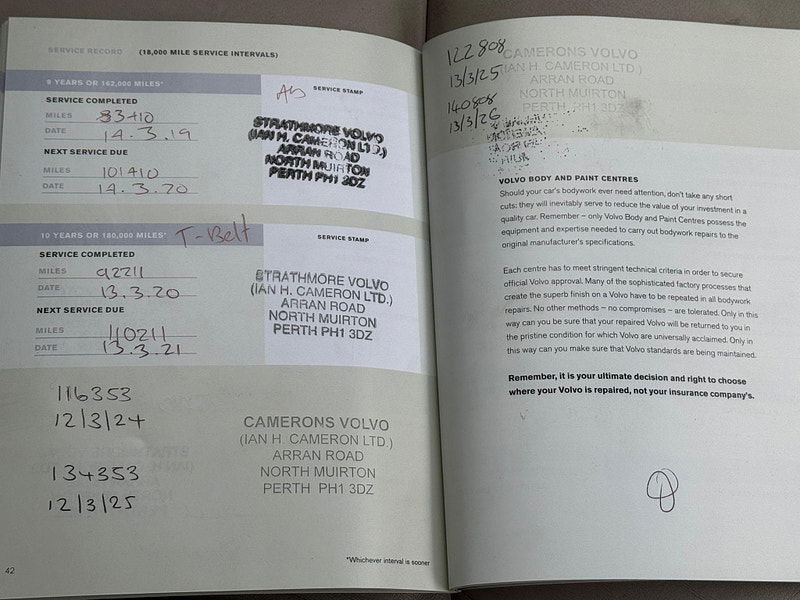 SERVICE RECORD (18,000 MILE SERVICE INTERVALS)
9 YEARS OR 162,000 MILES*
SERVICE STAMP
SERVICE COMPLETED
MILES 83410
DATE 14.3.19
NEXT SERVICE DUE
MILES 101410
DATE 14.3.20
STRATHMORE VOLVO
(IAN H. CAMERON LTD.)
ARRAN ROAD
NORTH MUIRTON
PERTH PH1 3DZ
10 YEARS OR 180,000 MILES* T-Belt
SERVICE STAMP
SERVICE COMPLETED
MILES 92211
DATE 13.3.20
NEXT SERVICE DUE
MILES 110211
DATE 13.3.21
STRATHMORE VOLVO
(IAN H. CAMERON LTD.)
ARRAN ROAD
NORTH MUIRTON
PERTH PH1 3DZ
116353
12/3/24
134353
12/3/25
CAMERONS VOLVO
(IAN H. CAMERON LTD.)
ARRAN ROAD
NORTH MUIRTON
PERTH PH1 3DZ
*Whichever interval is sooner
42
122808
13/3/25
140808
13/3/26
CAMERONS VOLVO
(IAN H. CAMERON LTD.)
ARRAN ROAD
NORTH MUIRTON
PERTH PH1 3DZ
VOLVO BODY AND PAINT CENTRES
Should your car's bodywork ever need attention, don't take any short
cuts: they will inevitably serve to reduce the value of your investment in a
quality car. Remember – only Volvo Body and Paint Centres possess the
equipment and expertise needed to carry out bodywork repairs to the
original manufacturer's specifications.
Each centre has to meet stringent technical criteria in order to secure
official Volvo approval. Many of the sophisticated factory processes that
create the superb finish on a Volvo have to be repeated in all bodywork
repairs. No other methods – no compromises – are tolerated. Only in this
way can you be sure that your repaired Volvo will be returned to you in
the pristine condition for which Volvo are universally acclaimed. Only in
this way can you make sure that Volvo standards are being maintained.
Remember, it is your ultimate decision and right to choose
where your Volvo is repaired, not your insurance company's.